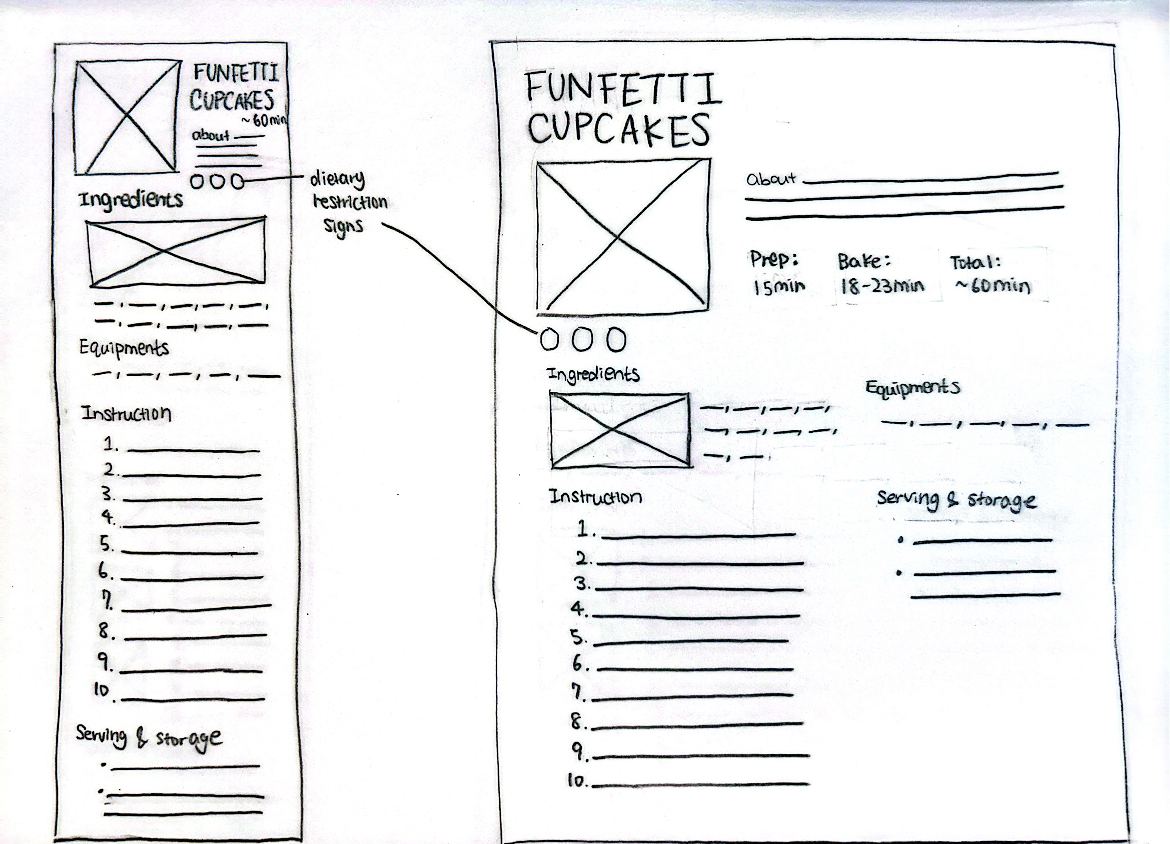 FUNFETTI
CUPCAKES
~60min
about
Ingredients
Equipments
Instruction
1.
2.
3.
4.
5.
6.
7.
8.
9.
10.
Serving & storage
dietary
restriction
signs
FUNFETTI
CUPCAKES
about
Prep:
15min
Bake:
18-23min
Total:
~60min
Ingredients
Equipments
Instruction
1.
2.
3.
4.
5.
6.
7.
8.
9.
10.
Serving & storage